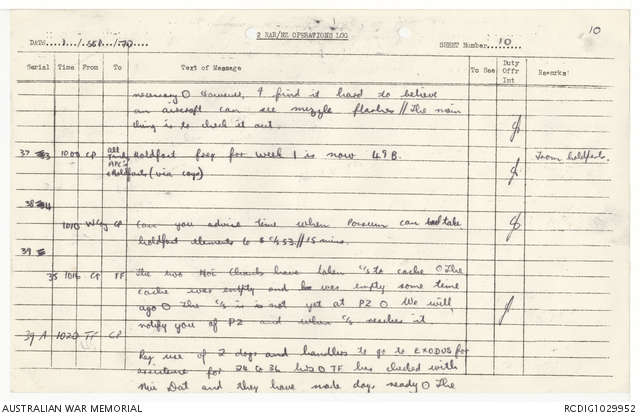 10
2 RAR/NZ OPERATIONS LOG
DATE 1 / SEP / 70 SHEET Number 10
Serial Time From To Text of Message To See Duty Offr Int Remarks
necessary O However, I find it hard to believe
an aircraft can see muzzle flashes // The main
thing is to check it out.
37 1000 CP all Holdfast freq for week 1 is now 49 B. From holdfast.
APC's
(via coys)
38
1010 CP Can you advise time when Possum can take
holdfast elements to C/S 53 // 15 mins.
39
35 1016 CP TF The two Hoi Chanhs have taken C/S to cache O The
cache was empty and was empty some time
ago O The C/S is not yet at PZ O We will
notify you of PZ and when C/S reaches it
39 A 1020 TF CP
Req use of 2 dogs and handlers to go to EXODUS for
assistance for 24 to 36 hrs O TF has checked with
Nui Dat and they have made dogs ready O The
AUSTRALIAN WAR MEMORIAL RCDIG1029952